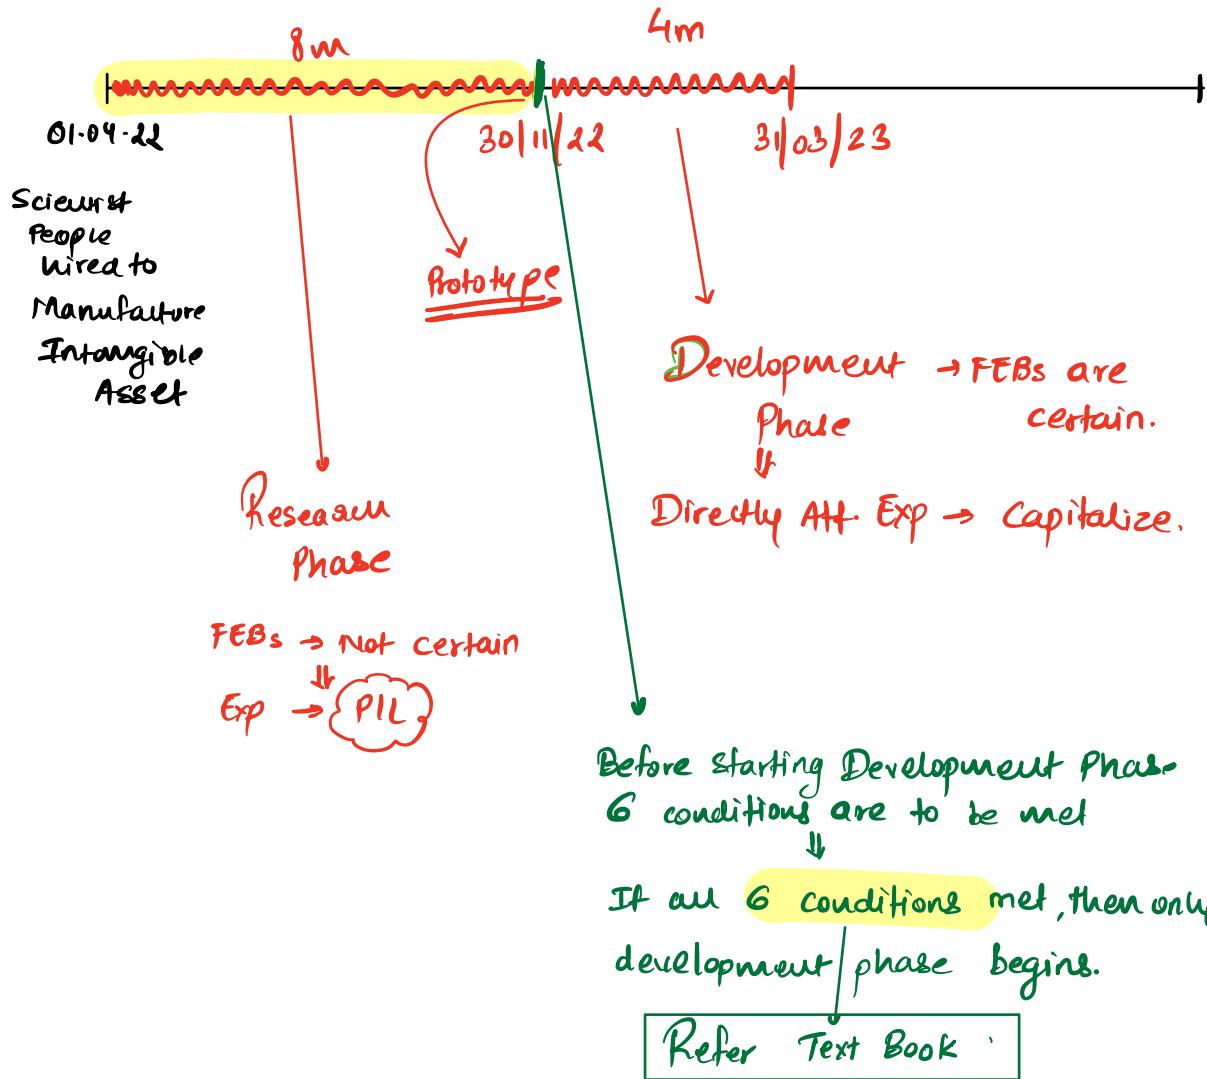 8m
4m
01·04·22
30/11/22
31/03/23
Scientist
People
hired to
Manufacture
Intangible
Asset
Prototype
Development → FEBs are
Phase
certain.
⇓
Directly Att. Exp → Capitalize.
Research
Phase
FEBs → Not certain
⇓
Exp → P/L
Before starting Development Phase
6 conditions are to be met
⇓
If all 6 conditions met, then only
development phase begins.
Refer Text Book